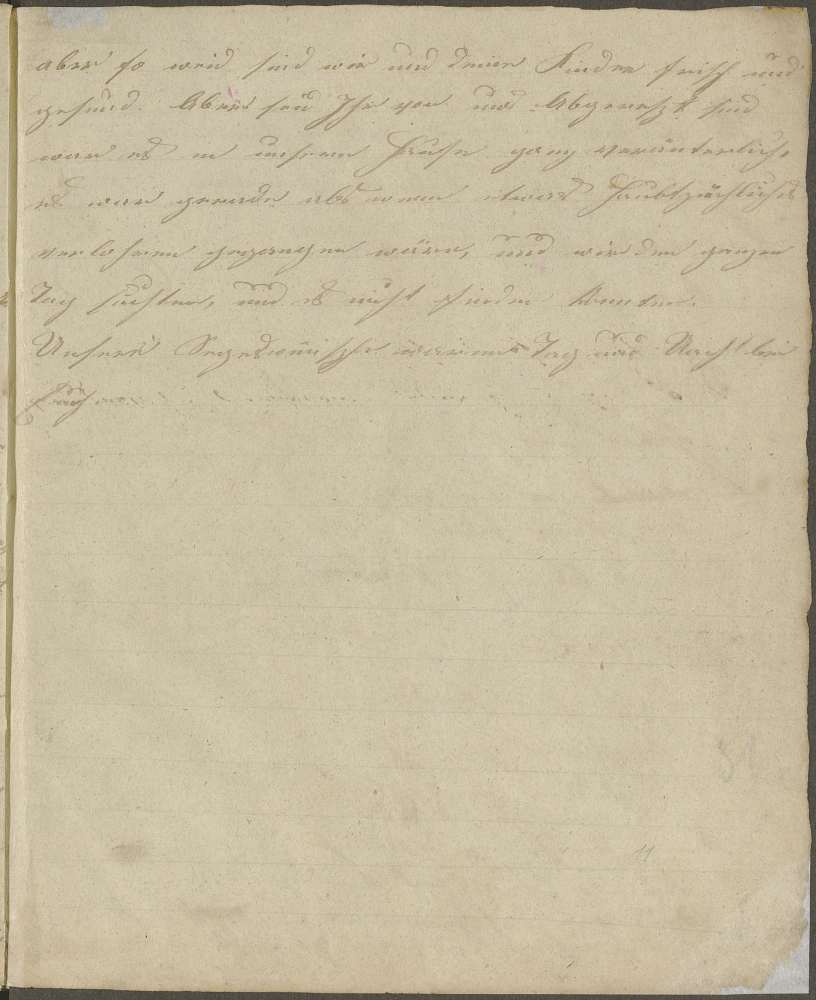 aber so weid sind wir und deine Kinder frisch und
gesund. Aber seid Ihr von uns Abgereißt sind
war es in unserem Hause ganz veränterlich,
es war gerade als wenn etwas Haubtsächliches
verlohren gegangen wäre, und wir den ganzen
Tag suchten, und es nicht finden konnten.
Unsere Segeswünsche waren Tag und Nacht bei
Euch
11